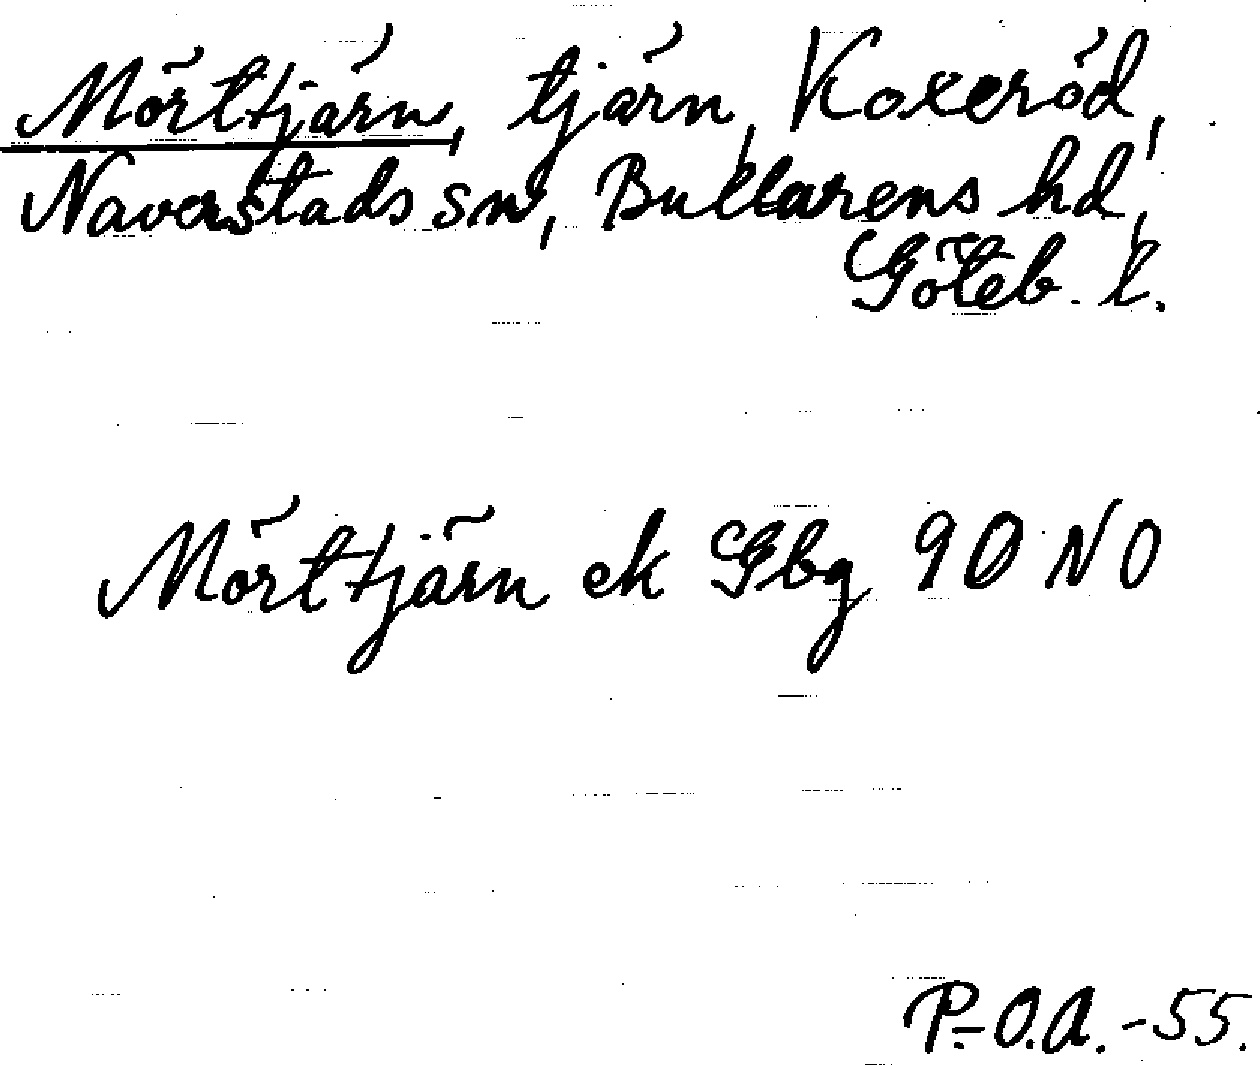 Mörttjärn, tjärn, Koxeröd,
Naverstads sn, Bullarens hd,
Göteb. l.
Mörttjärn ek Gbg 90 NO
P.-O.A. -55.